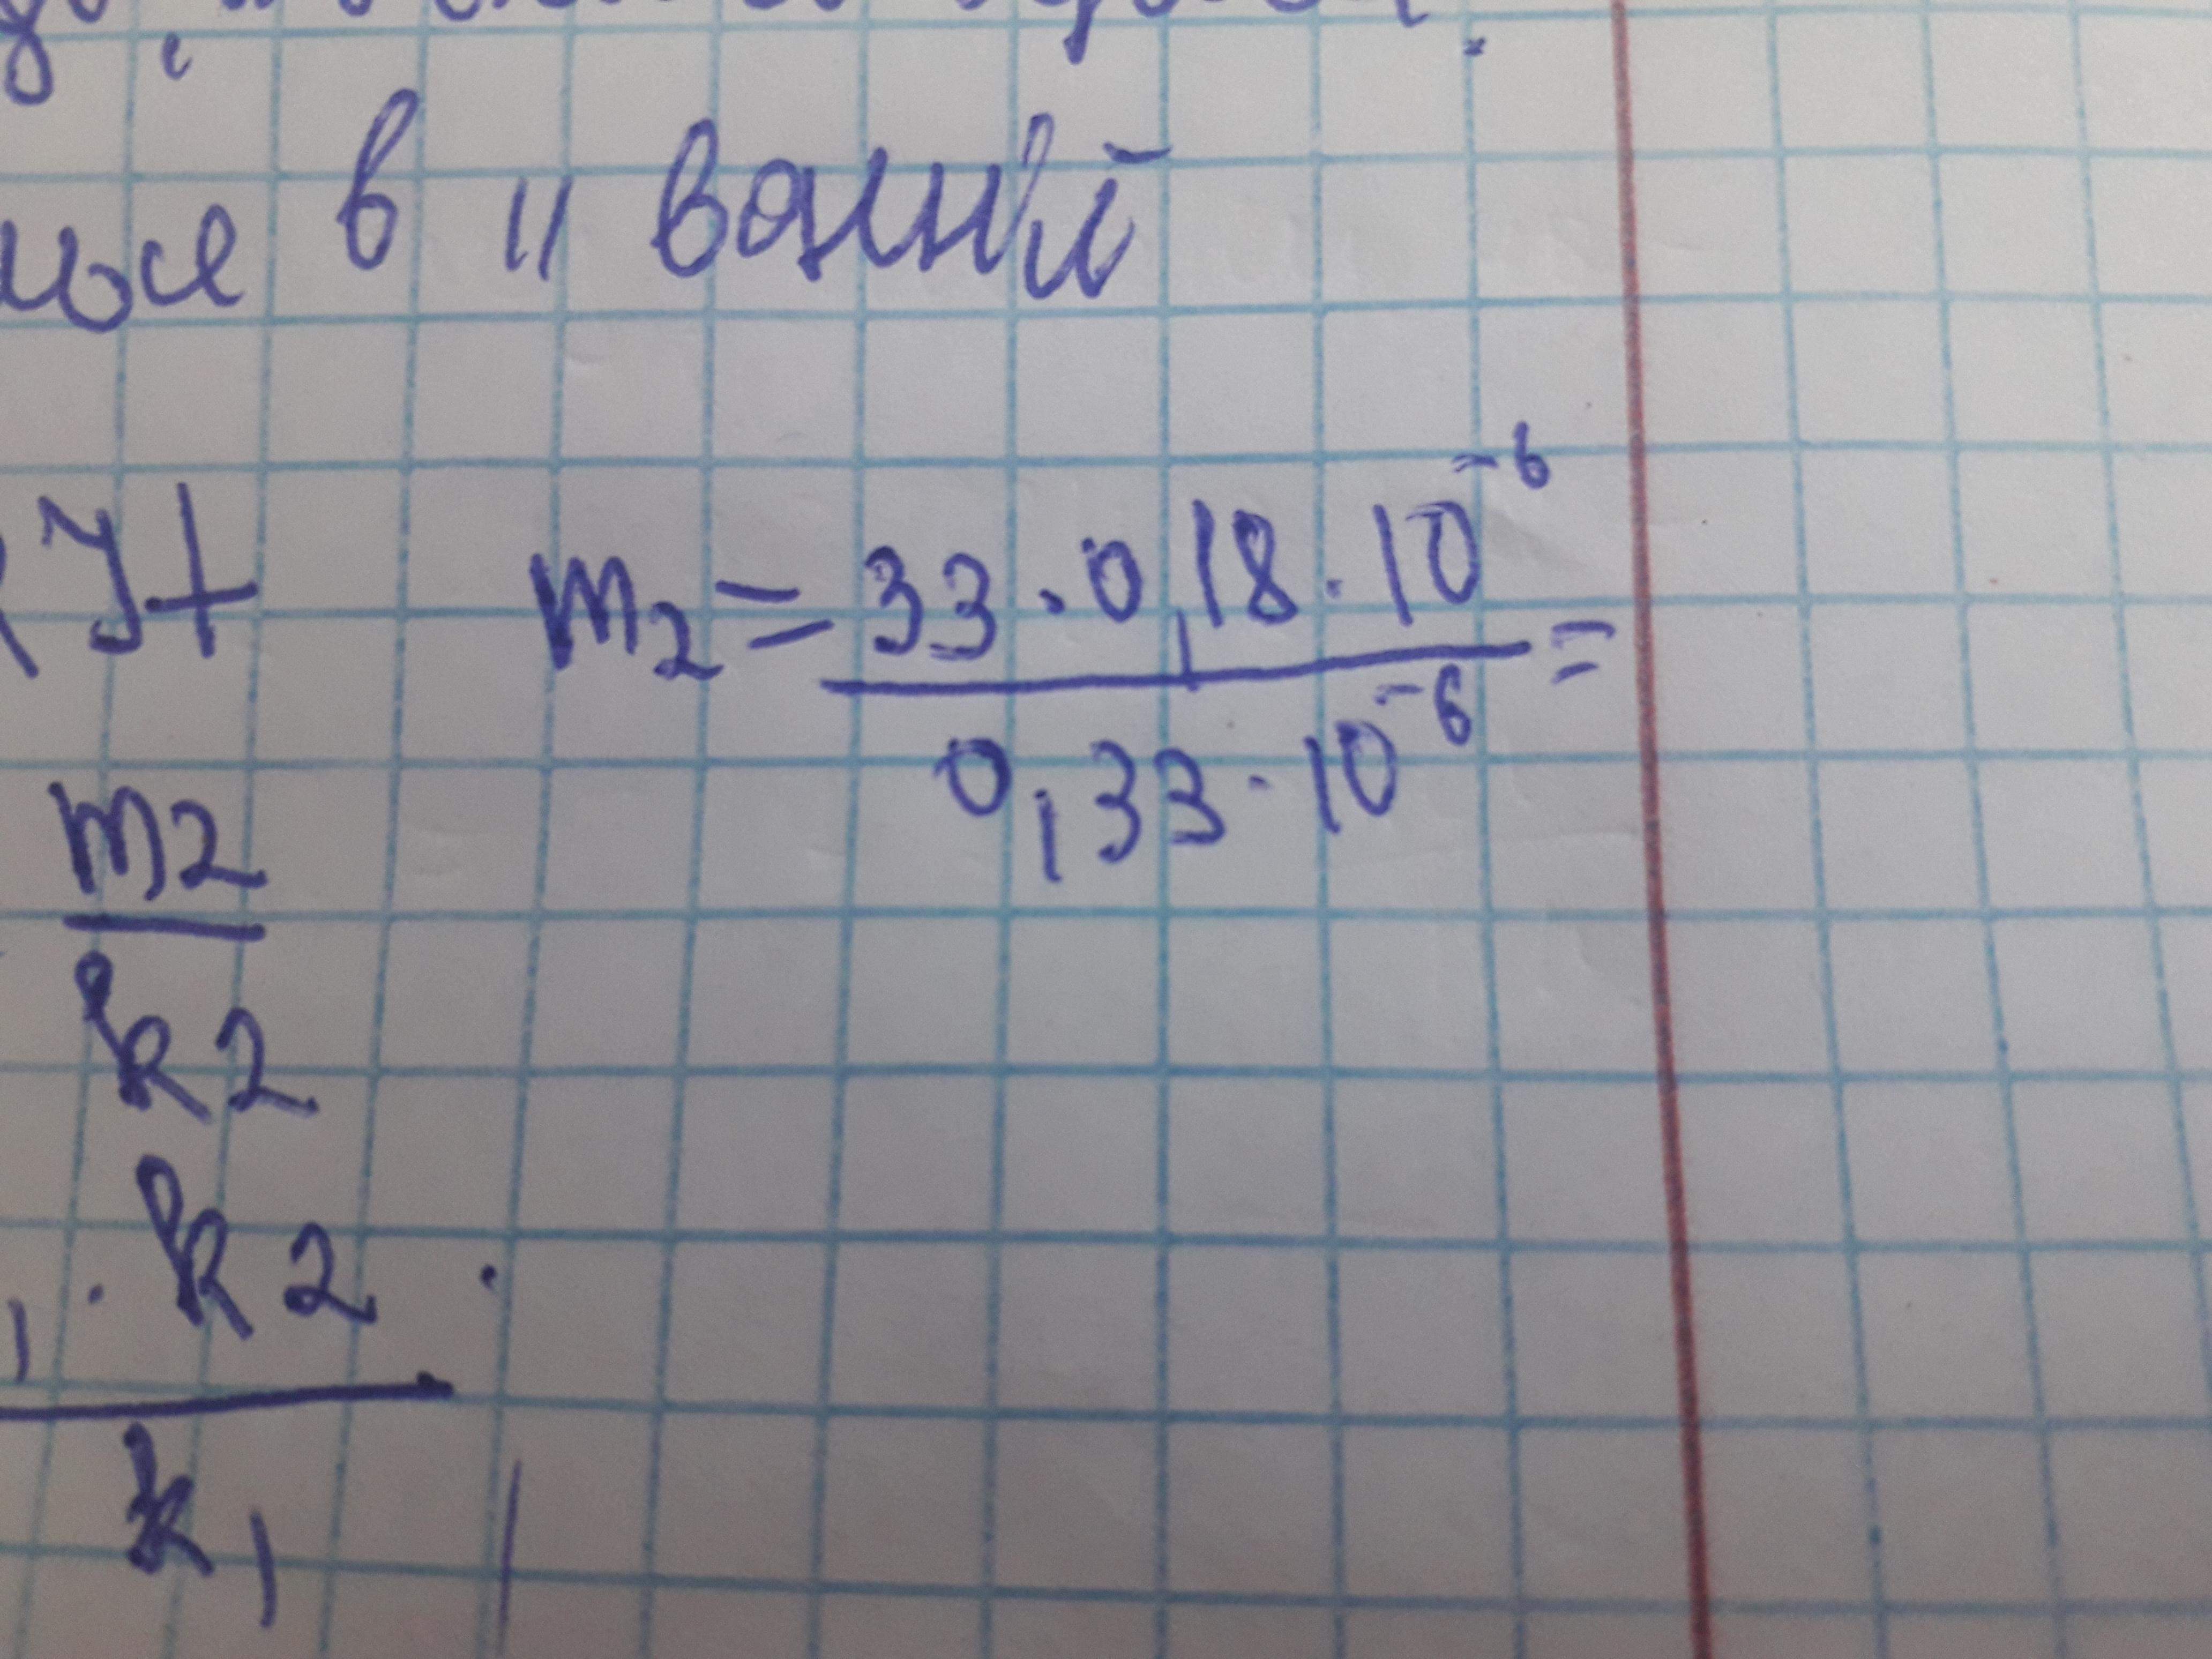 в II ванній
It m₂ = (33 · 0,18 · 10⁻⁶) / (0,33 · 10⁻⁶) =
m2
k2
· k2
k₁